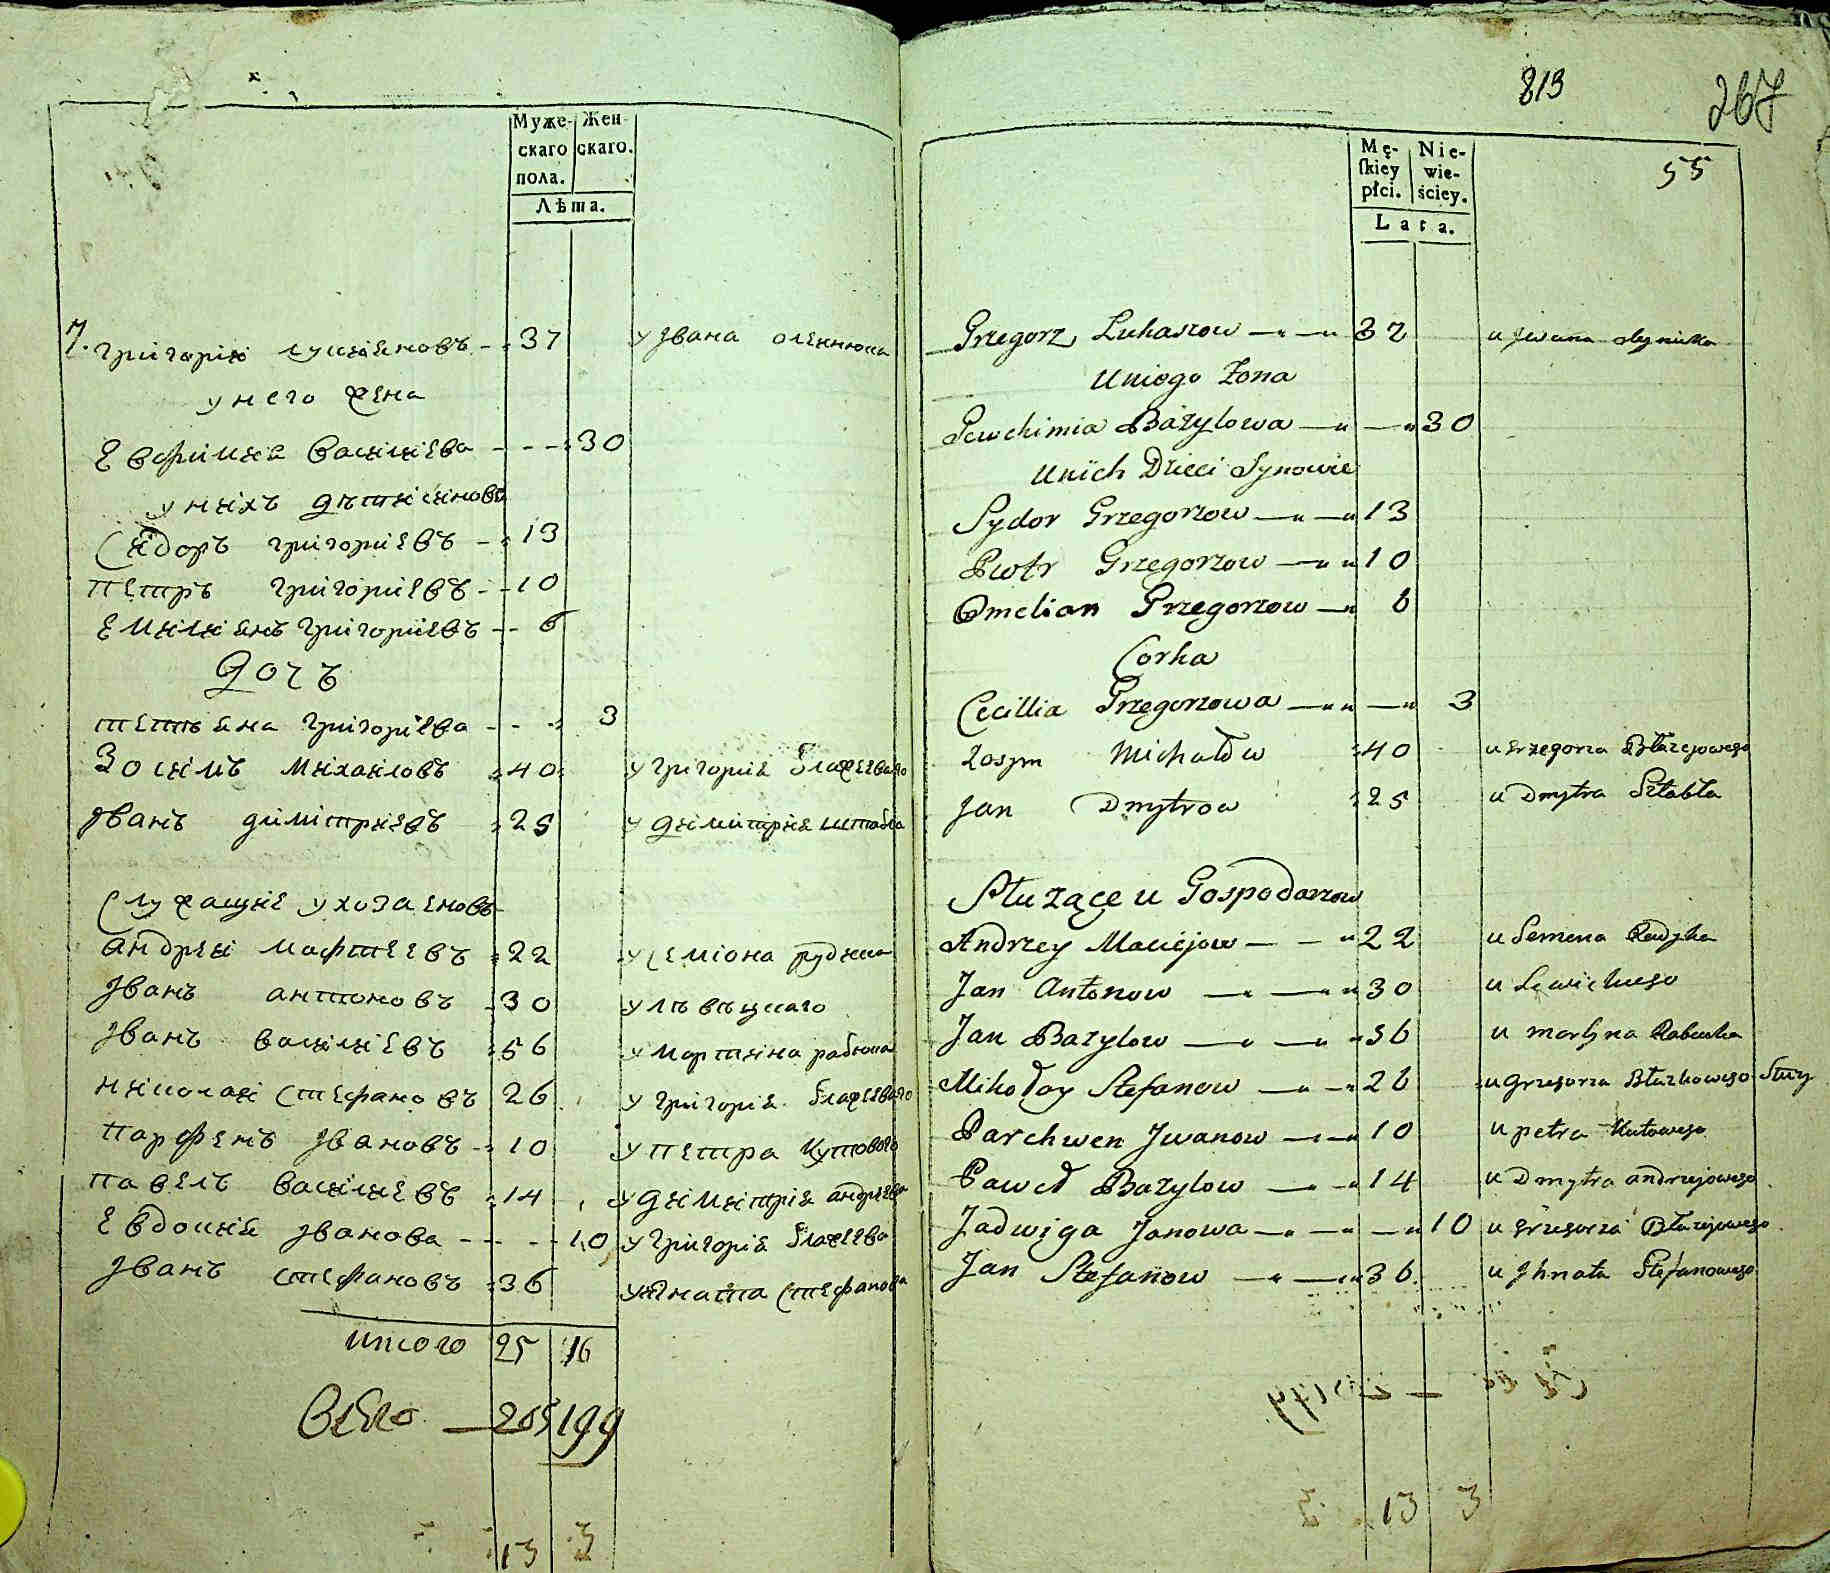 Муже-
скаго
пола.
Жен-
скаго.
Лѣта.
7. григорій лукіяновъ 37 у Івана олейника
у него жена
Евфимія василіева 30
у нихъ дѣти синовя
Сидоръ григоріевъ 13
петръ григоріевъ 10
Емиліянъ григоріевъ 6
дочъ
тетяна григоріева 3
Зосимъ михайловъ 40 у григорія блажеевого
Іванъ димитріевъ 25 у димитрія штабла
Служащіе у хозаеновъ
андрей матфеевъ 22 у семіона рудика
Іванъ антоновъ 30 у лѣвѣцкаго
Іванъ василіевъ 56 у мартина рабюка
николай стефановъ 26 у григорія блажеевого
парфенъ Івановъ 10 у петра кутового
павелъ василіевъ 14 у димитрія андреева
Евдокія Іванова 10 у григорія блажеева
Іванъ стефановъ 36 у игната стефанова
итого 25 16
Всего 205 199
813
267
55
Mę-
ſkiey
płci.
Nie-
wie-
ściey.
Lata.
Grzegorz Lukaszow 37 u Jwana Oleynika
Uniego Żona
Pewchimia Bazylowa 30
Unich Dzieci Synowie
Sydor Grzegorzow 13
Piotr Grzegorzow 10
Omelian Grzegorzow 6
Corka
Cecillia Grzegorzowa 3
Zosym Michałow 40 u Grzegorza Błażejowego
Jan Dmytrow 25 u Dmytra Sztabla
Służące u Gospodarzow
Andrzey Maciejow 22 u Semena Rudyka
Jan Antonow 30 u Lewickiego
Jan Bazylow 56 u Martyna Rabiuka
Mikołay Stefanow 26 u Grzegorza
Parchwen Jwanow 10 u Petra Kutowego
Paweł Bazylow 14 u Dmytra andrzejowego
Jadwiga Janowa 10 u Grzegorza Błażejowego
Jan Stefanow 36 u Jhnata Stefanowego